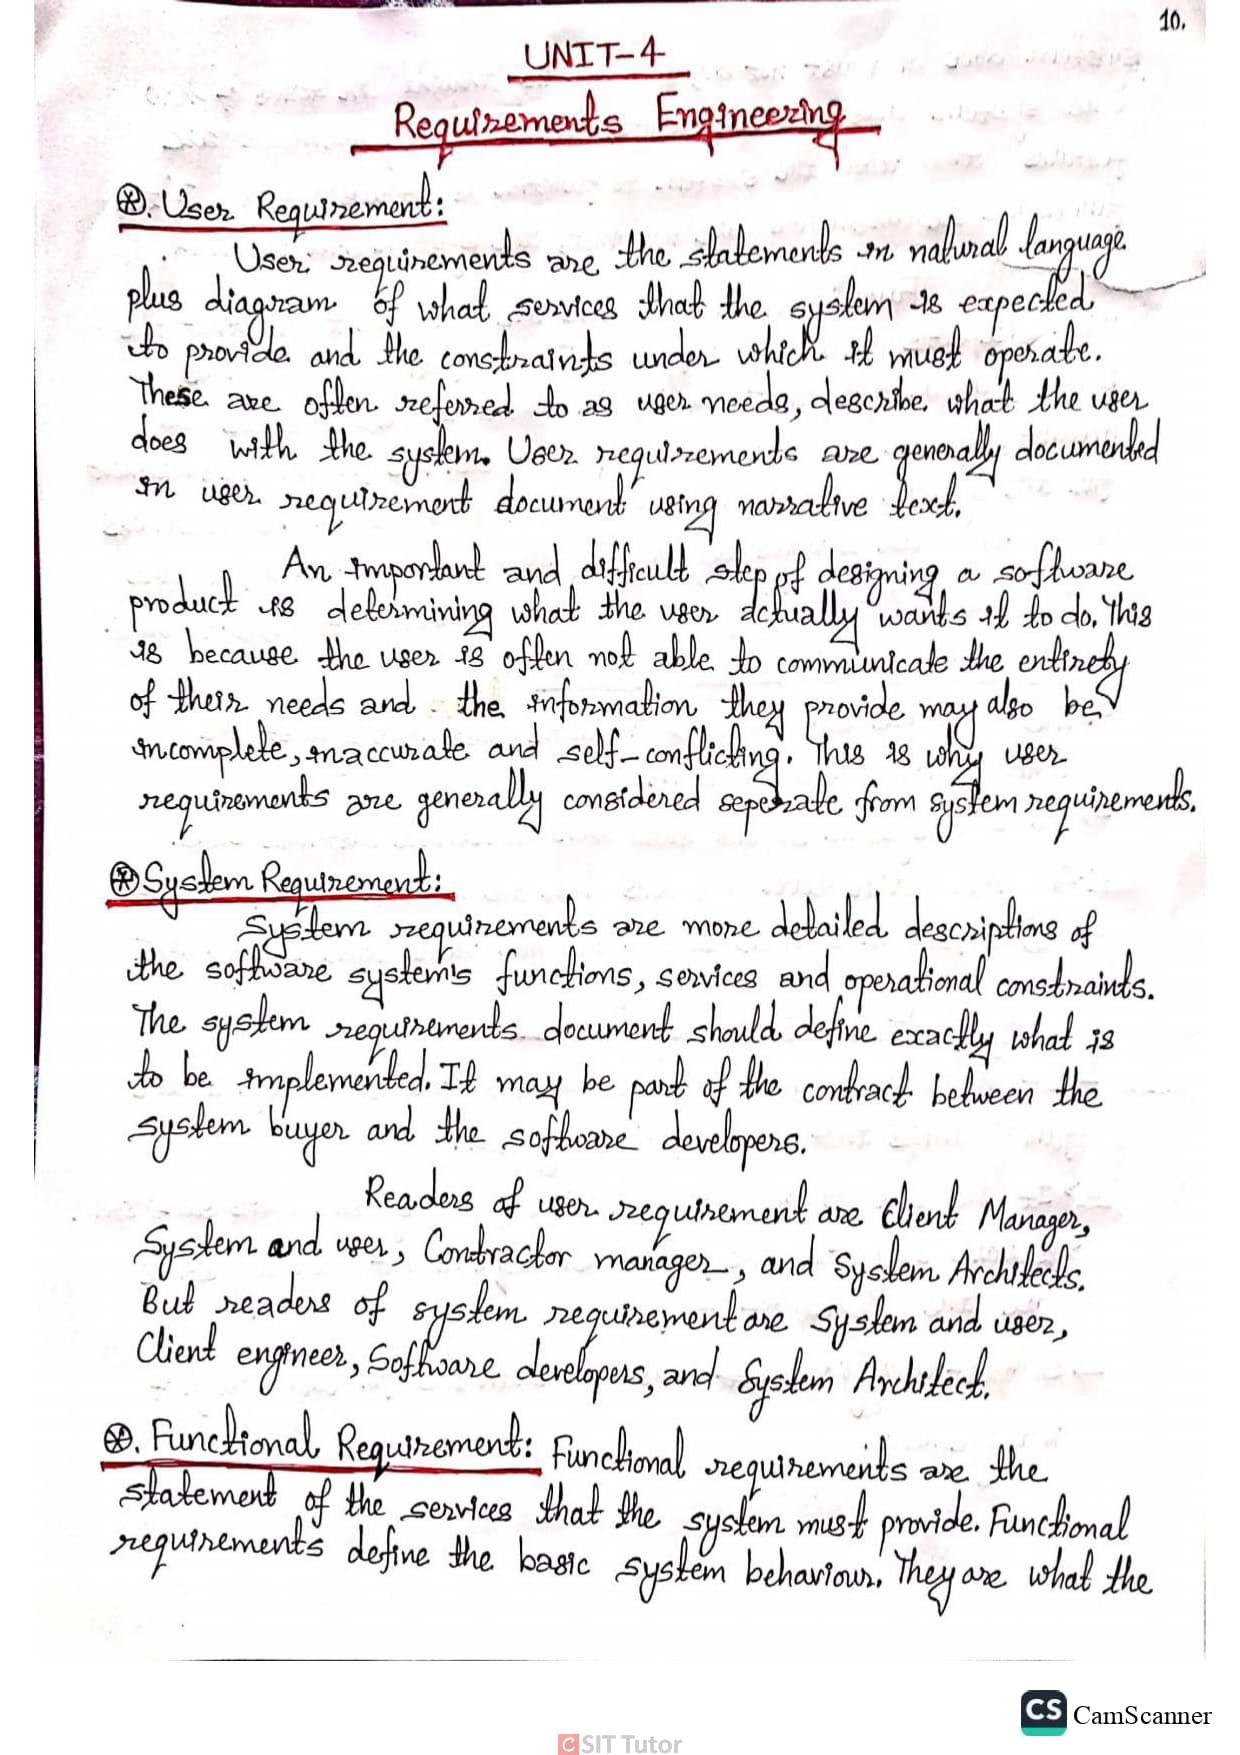 10.
UNIT-4
Requirements Engineering
⊛. User Requirement:
User requirements are the statements in natural language
plus diagram of what services that the system is expected
to provide and the constraints under which it must operate.
These are often referred to as user needs, describe what the user
does with the system. User requirements are generally documented
in user requirement document using narrative text.
An important and difficult step of designing a software
product is determining what the user actually wants it to do. This
is because the user is often not able to communicate the entirety
of their needs and the information they provide may also be
incomplete, inaccurate and self-conflicting. This is why user
requirements are generally considered seperate from system requirements.
⊛ System Requirement:
System requirements are more detailed descriptions of
the software system's functions, services and operational constraints.
The system requirements document should define exactly what is
to be implemented. It may be part of the contract between the
system buyer and the software developers.
Readers of user requirement are Client Manager,
System and user, Contractor manager, and System Architects.
But readers of system requirement are System and user,
Client engineer, Software developers, and System Architect.
⊛. Functional Requirement: Functional requirements are the
statement of the services that the system must provide. Functional
requirements define the basic system behaviour. They are what the
CS CamScanner
CSIT Tutor